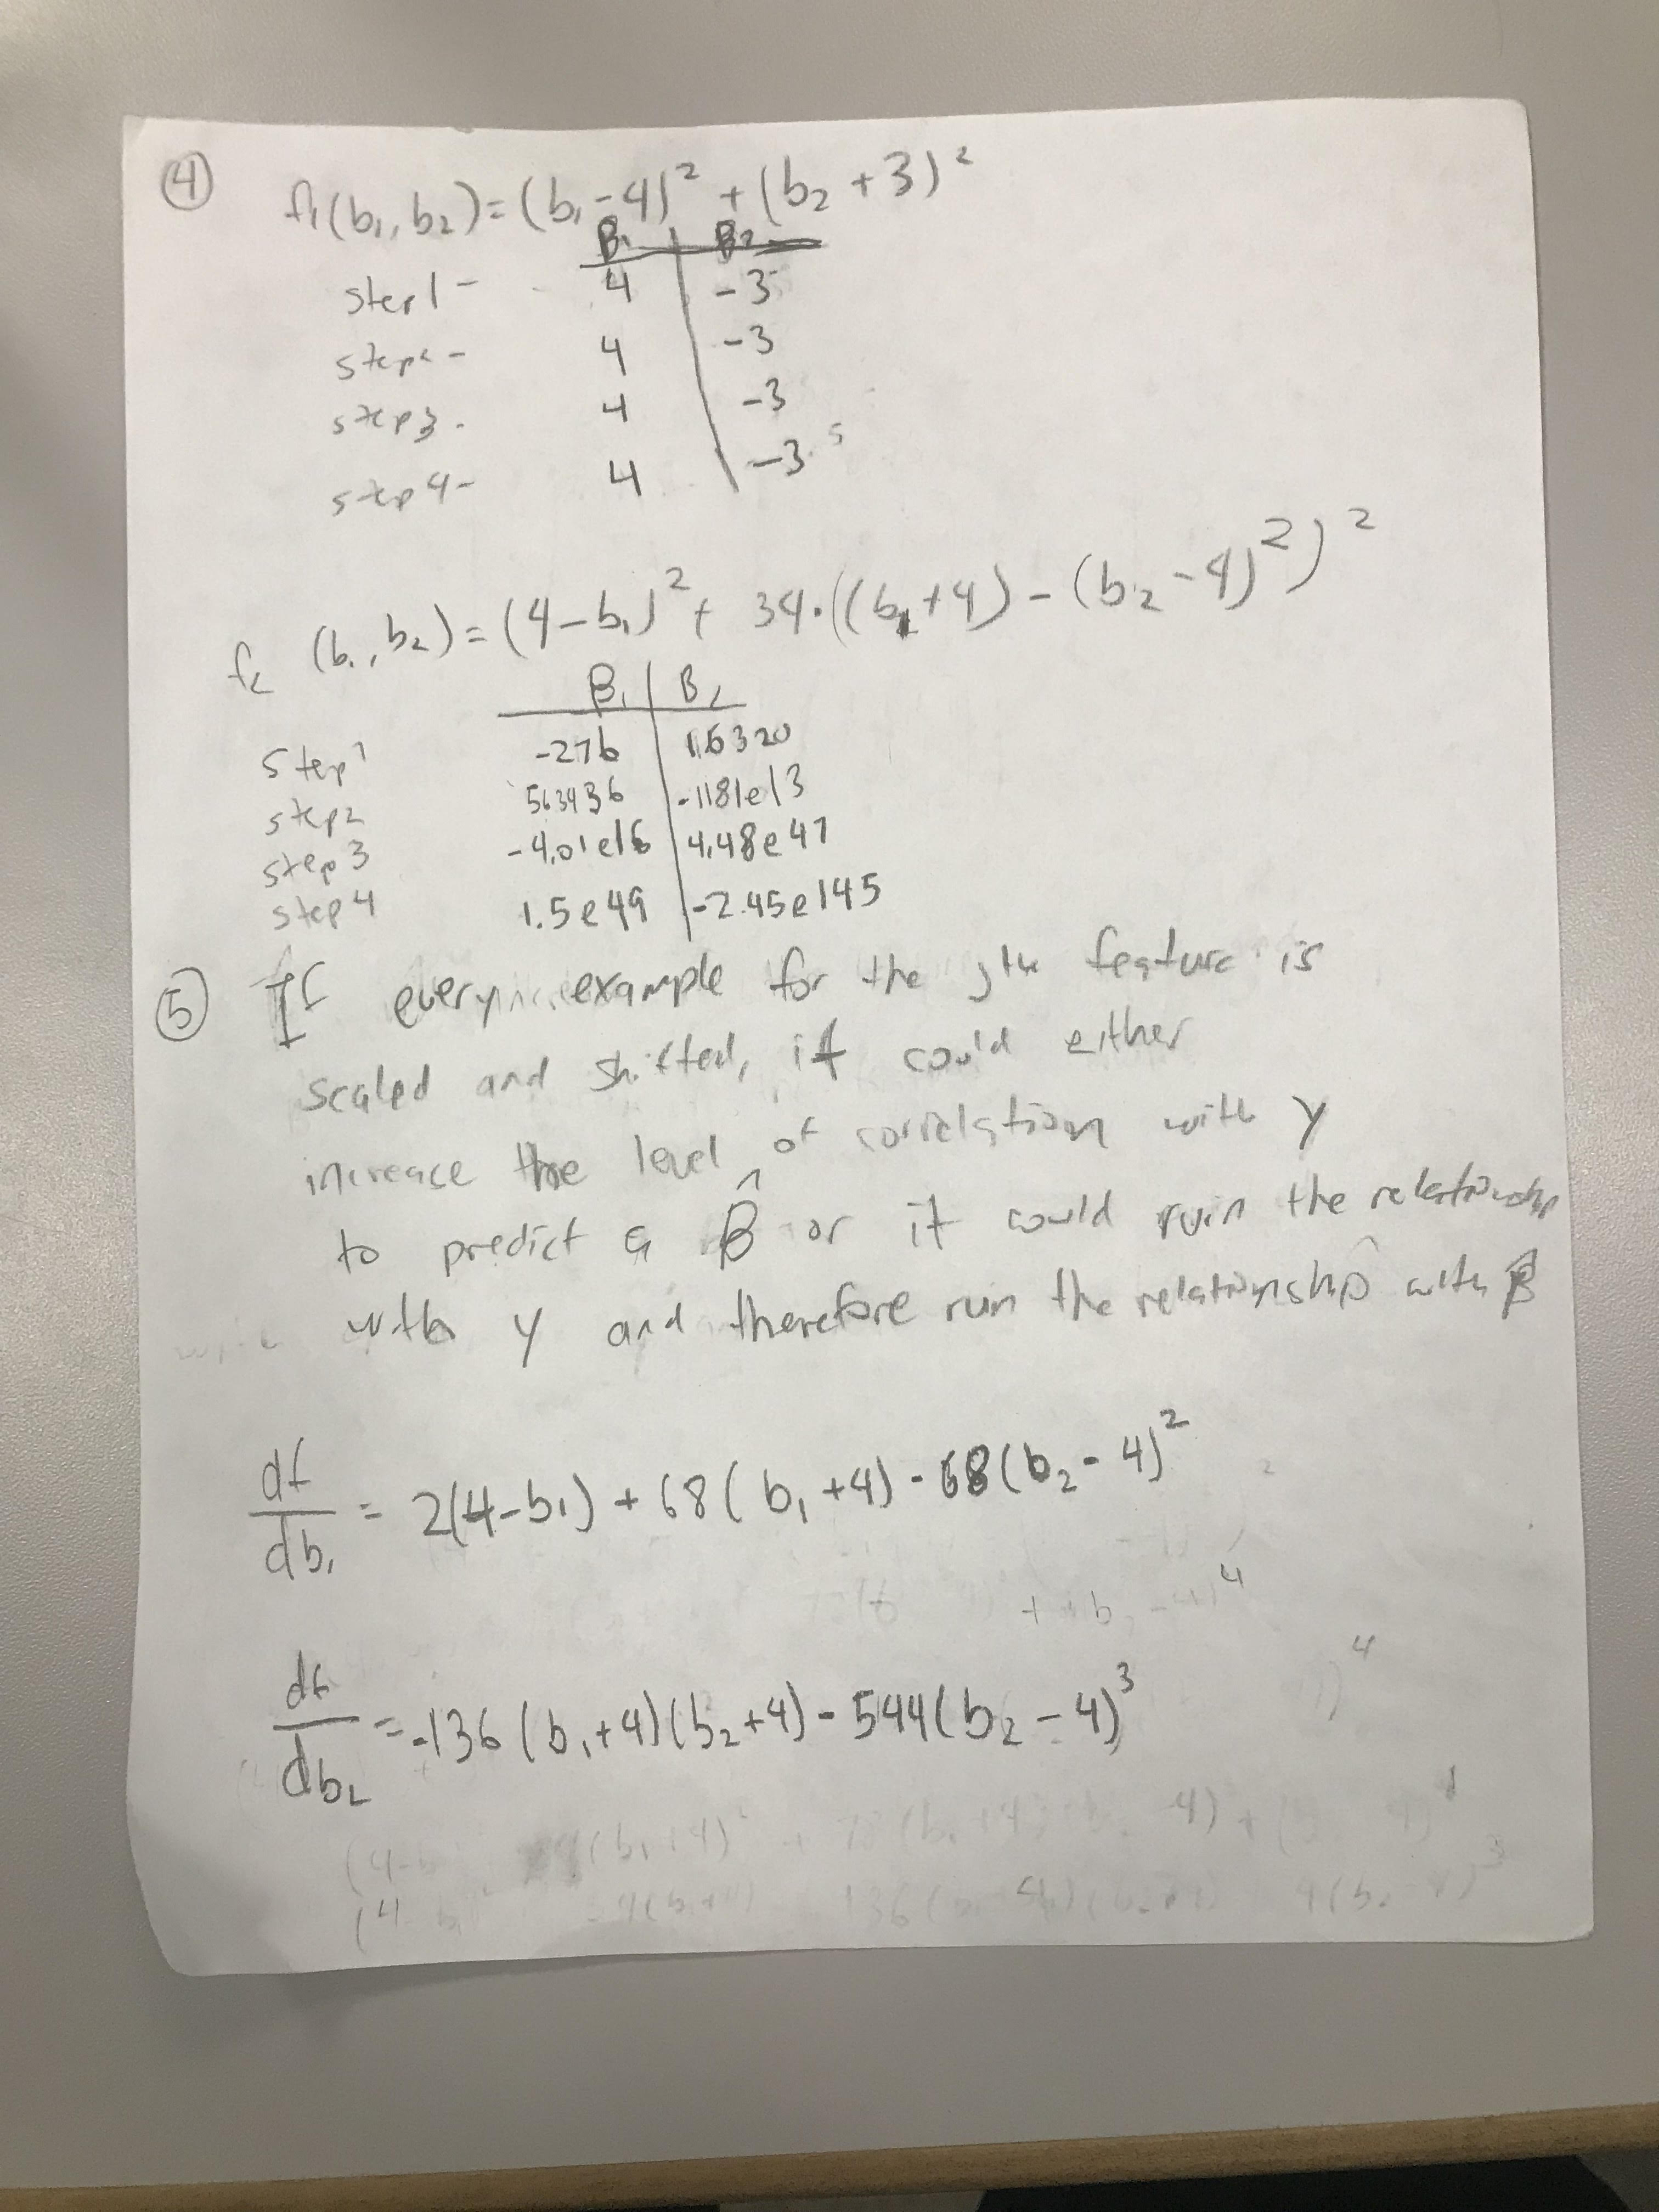 ④ f₁(b₁, b₂) = (b₁ - 4)² + (b₂ + 3)²
β₁ | β₂
step 1 - 4 | -3
step 2 - 4 | -3
step 3 - 4 | -3
step 4 - 4 | -3
f₂ (b₁, b₂) = (4 - b₁)² + 34 · ((b₁ + 4) - (b₂ - 4)²)²
β₁ | β₂
Step 1 -276 | 16320
step 2 563436 | -1181e13
step 3 -4.01e16 | 4.48e47
step 4 1.5e49 | -2.45e145
⑤ If every example for the jth feature is
scaled and shifted, it could either
increase the level of correlation with y
to predict a β̂ or it could ruin the relationship
with y and therefore ruin the relationship with β̂
df/db₁ = 2(4-b₁) + 68(b₁ + 4) - 68(b₂ - 4)²
df/db₂ = -136(b₁+4)(b₂+4) - 544(b₂ - 4)³